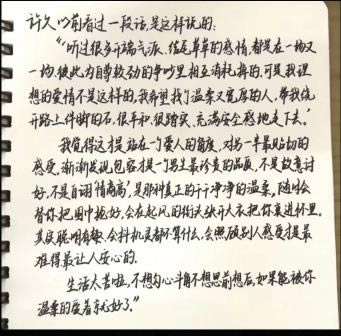 许久以前看过一段话,是这样说的:
“听过很多开端气派、结尾草草的感情,都是在一场又
一场彼此为自尊较劲的争吵里相互消耗掉的,可是我理
想的爱情不是这样的,我希望找个温柔又宽厚的人,带我绕
开路上绊脚的石,很平和,很踏实、充满安全感地走下去。”
我觉得这才是站在一个爱人的角度,对另一半最贴切的
感受,渐渐发现包容才是一个男生最珍贵的品质,不是故意讨
好,不是自诩“情商高”,是那种真正的干干净净的温柔,随时会
替你把围巾挽好,会在起风的街头张开大衣把你裹进怀里。
其实聪明有趣、会抖机灵都不算什么,会照顾别人感受才是最
难得最让人安心的.
生活太苦啦,不想勾心斗角不想思前想后,如果能被你
温柔的爱着就好了。”